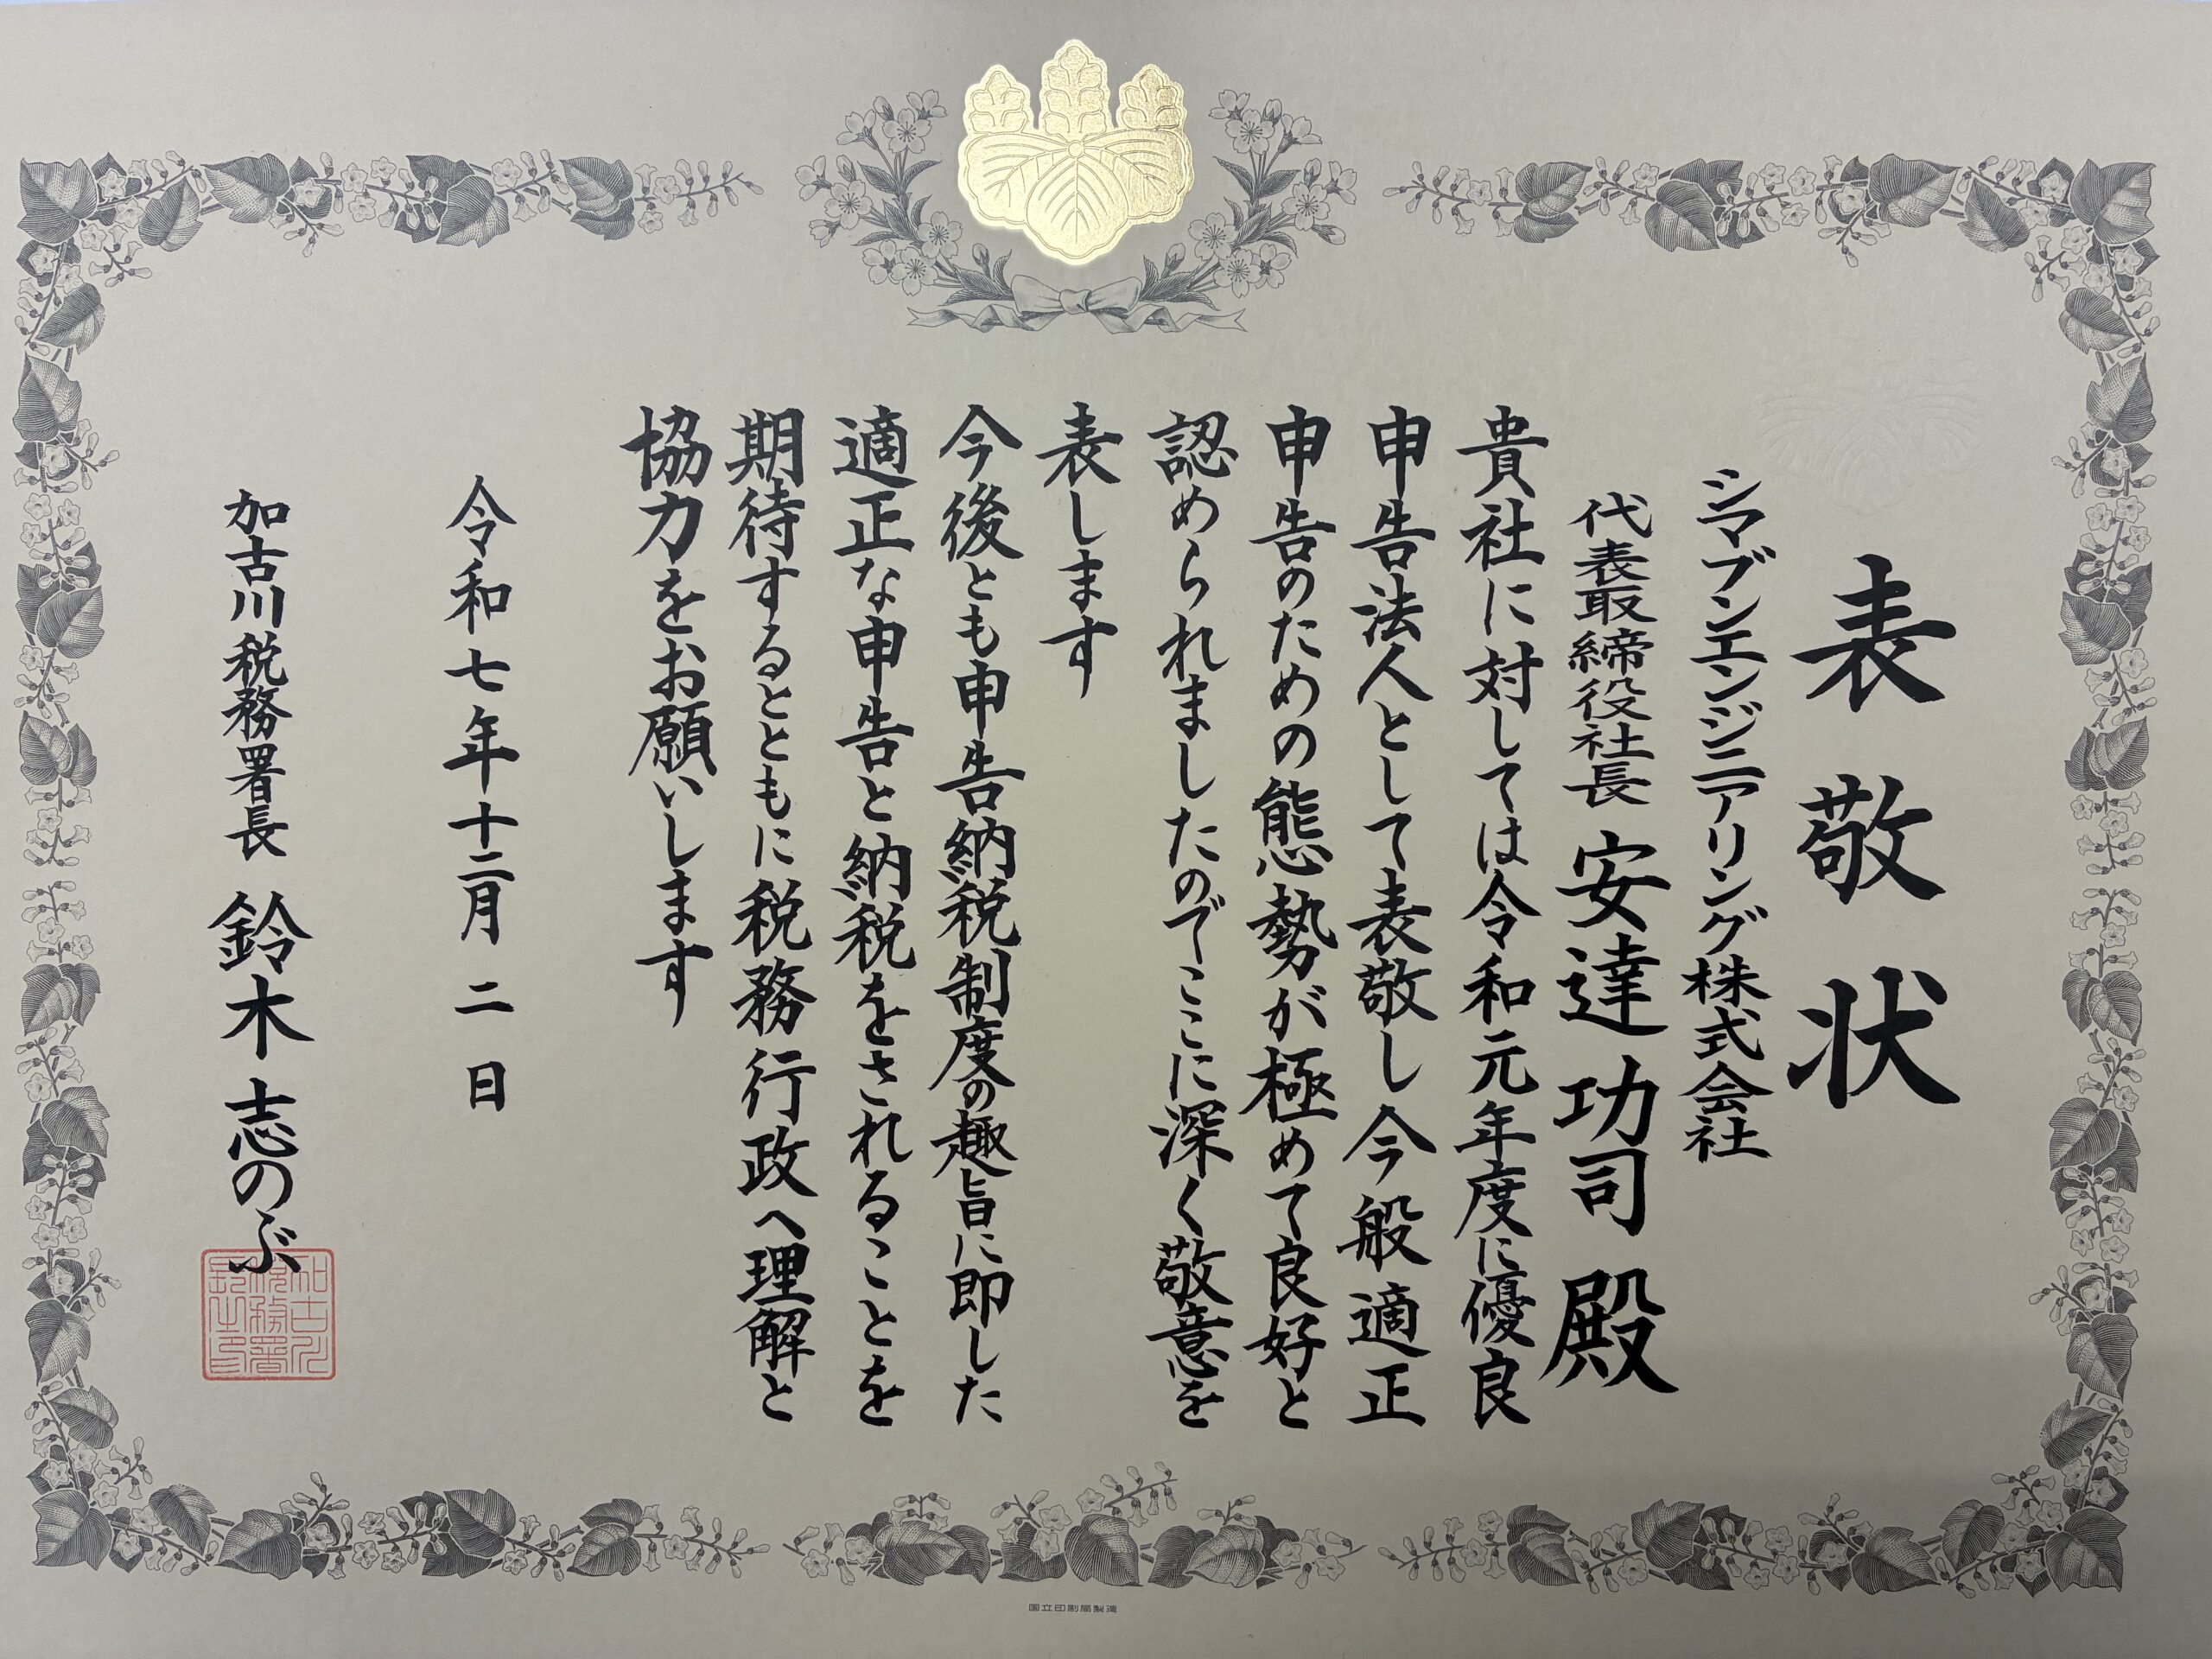 表敬状
シマブンエンジニアリング株式会社
代表取締役社長 安達功司 殿
貴社に対しては令和元年度に優良
申告法人として表敬し今般適正
申告のための態勢が極めて良好と
認められましたのでここに深く敬意を
表します
今後とも申告納税制度の趣旨に即した
適正な申告と納税をされることを
期待するとともに税務行政へ理解と
協力をお願いします
令和七年十二月二日
加古川税務署長 鈴木志のぶ
加古川税務署長之印
国立印刷局製造